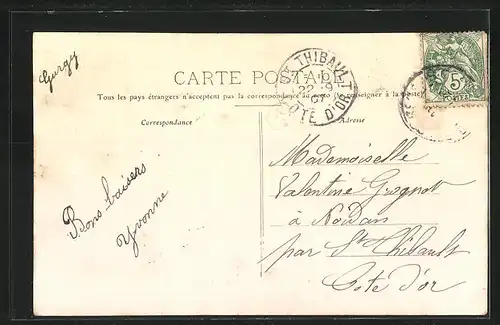 Gurgy
CARTE POSTALE
Tous les pays étrangers n'acceptent pas la correspondance au recto (Se renseigner à la poste)
Correspondance
Adresse
THIBAULT
22-9
07
CÔTE D'OR
5
Bons baisers
Yvonne
Mademoiselle
Valentine Grognot
à Nordan
par St Thibault
Cote d'or